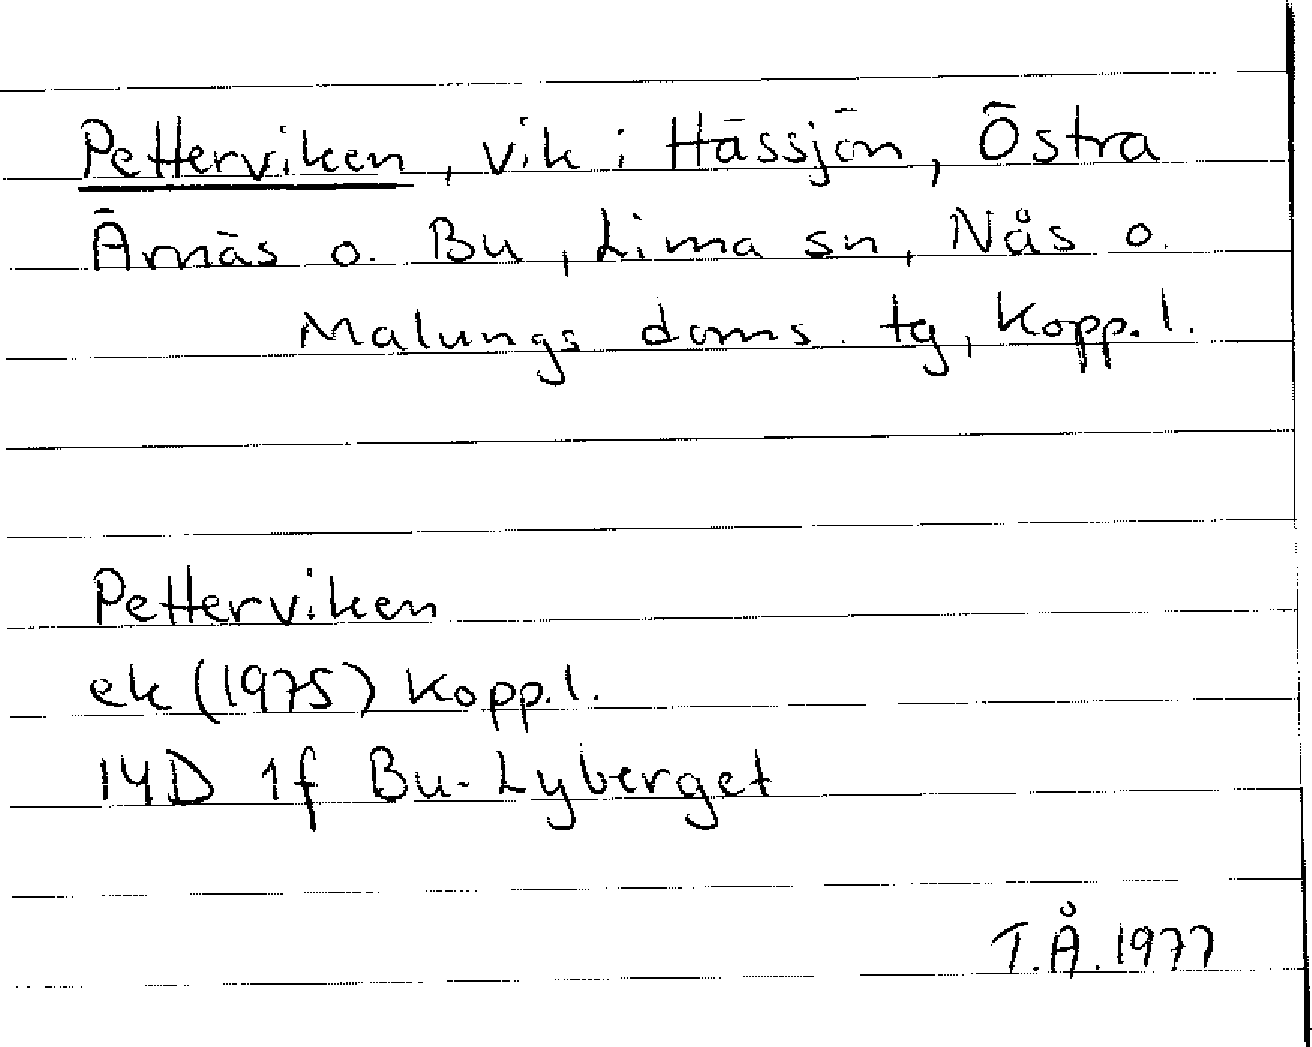 Petterviken, vik i Hässjön, Östra
Ärnäs o. Bu, Lima sn, Nås o.
Malungs doms. tg, Kopp. l.
Petterviken
ek (1975) Kopp. l.
14D 1f Bu-Lyberget
T.Å. 1977